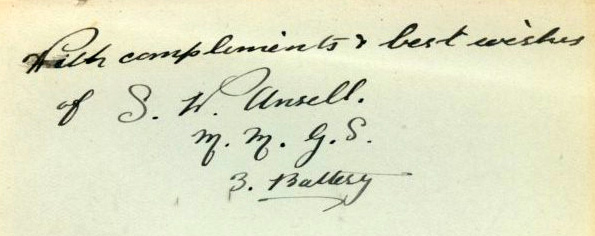 With compliments & best wishes
of S. W. Ansell.
M. M. G. S.
3. Battery